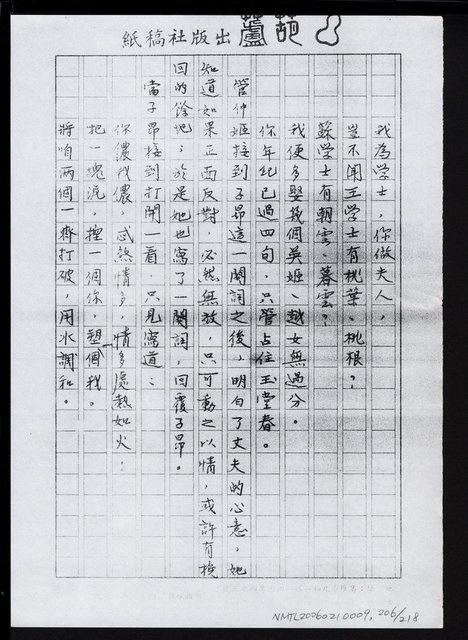 葫蘆出版社稿紙
我為学士，你做夫人，
豈不聞王学士有桃葉、桃根？
蘇学士有朝雲、暮雲？
我便多娶幾個吳姬、越女無過分。
你年紀已過四旬，只管占住玉堂春。
管仲姬接到子昂這一闋词之後，明白了丈夫的心意，她
知道如果正面反對，必然無效，只可動之以情，或許有挽
回的餘地；於是她也寫了一闋詞，回覆子昂。
當子昂接到打開一看，只見寫道：
你儂我儂，忒煞情多，情多處熱如火；
把一塊泥，揑一個你，塑個我。
將咱兩個一齊打破，用水調和。
NMTL20060210009, 206/218